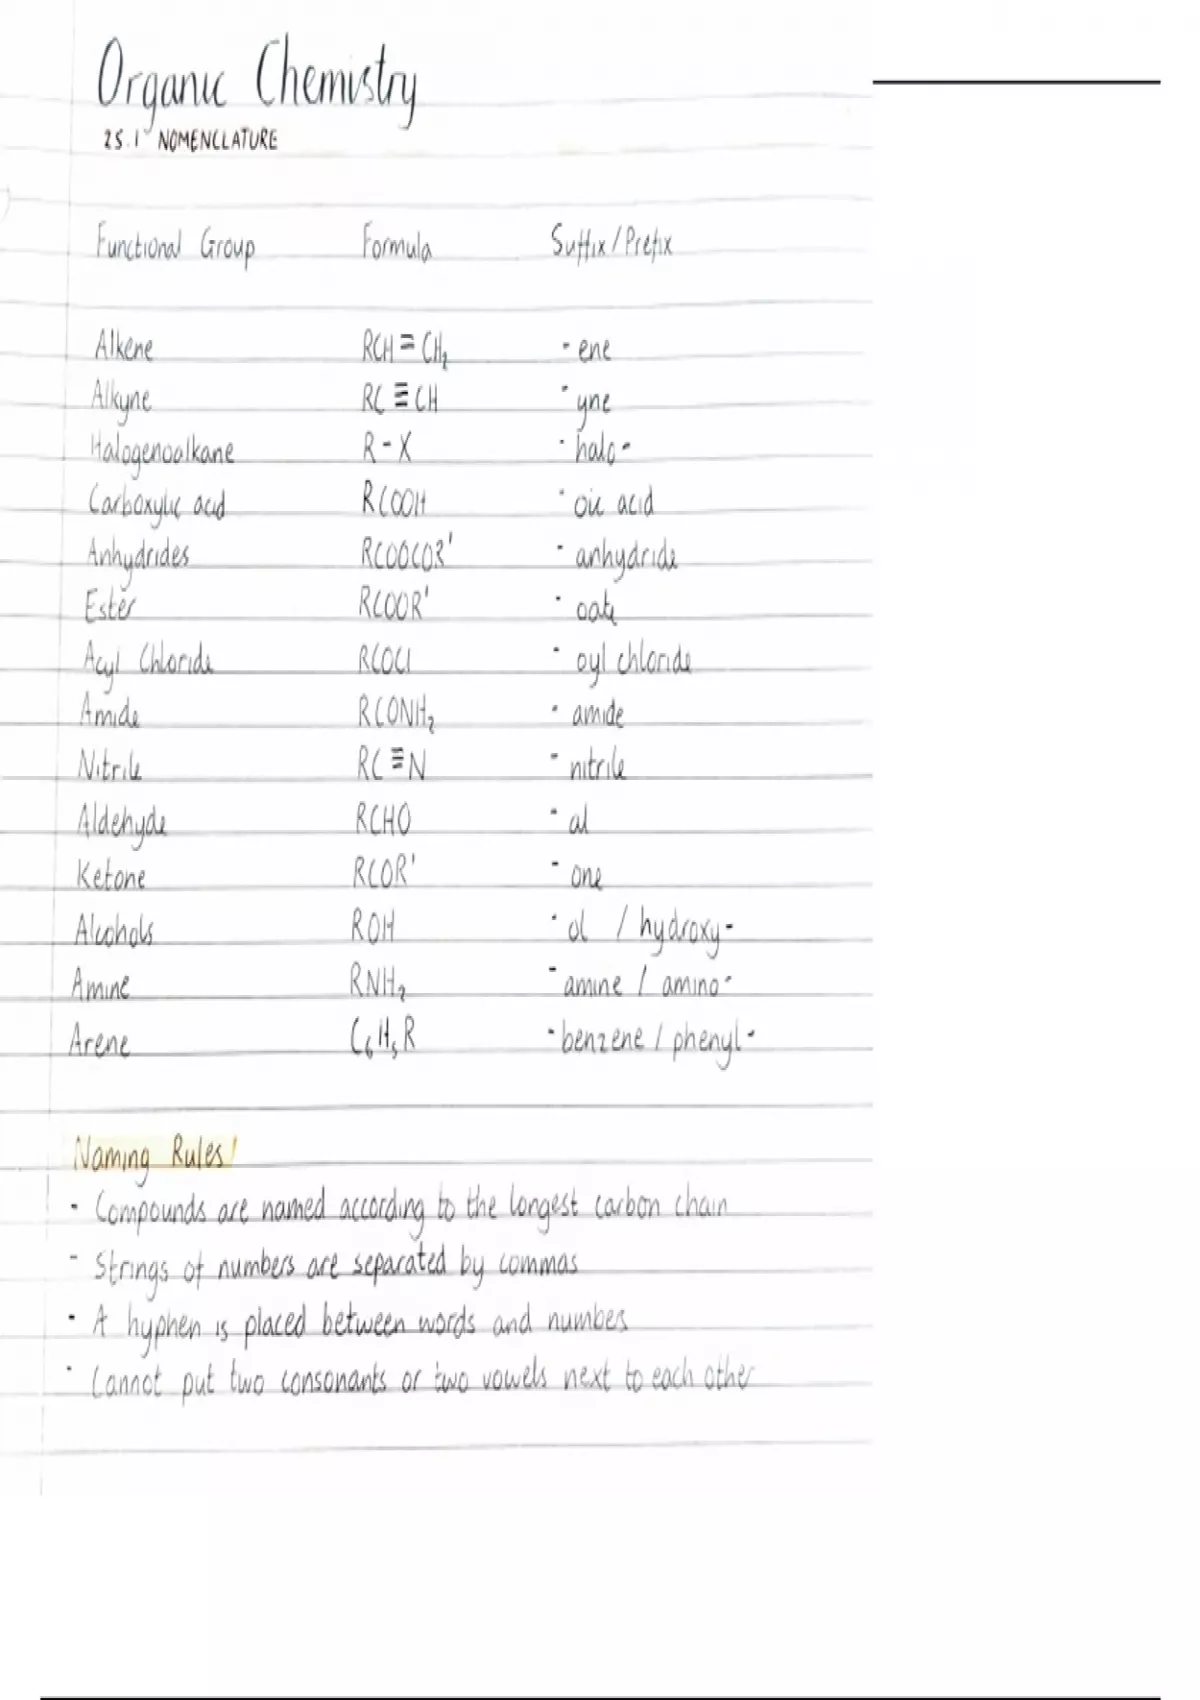 Organic Chemistry
25.1 NOMENCLATURE
Functional Group Formula Suffix/Prefix
Alkene RCH=CH₂ - ene
Alkyne RC≡CH - yne
Halogenoalkane R-X - halo-
Carboxylic acid RCOOH - oic acid
Anhydrides RCOOCOR' - anhydride
Ester RCOOR' - oate
Acyl Chloride RCOCl - oyl chloride
Amide RCONH₂ - amide
Nitrile RC≡N - nitrile
Aldehyde RCHO - al
Ketone RCOR' - one
Alcohols ROH - ol / hydroxy-
Amine RNH₂ - amine / amino-
Arene C₆H₅R - benzene / phenyl-
Naming Rules!
- Compounds are named according to the longest carbon chain
- Strings of numbers are separated by commas
- A hyphen is placed between words and numbes
- Cannot put two consonants or two vowels next to each other